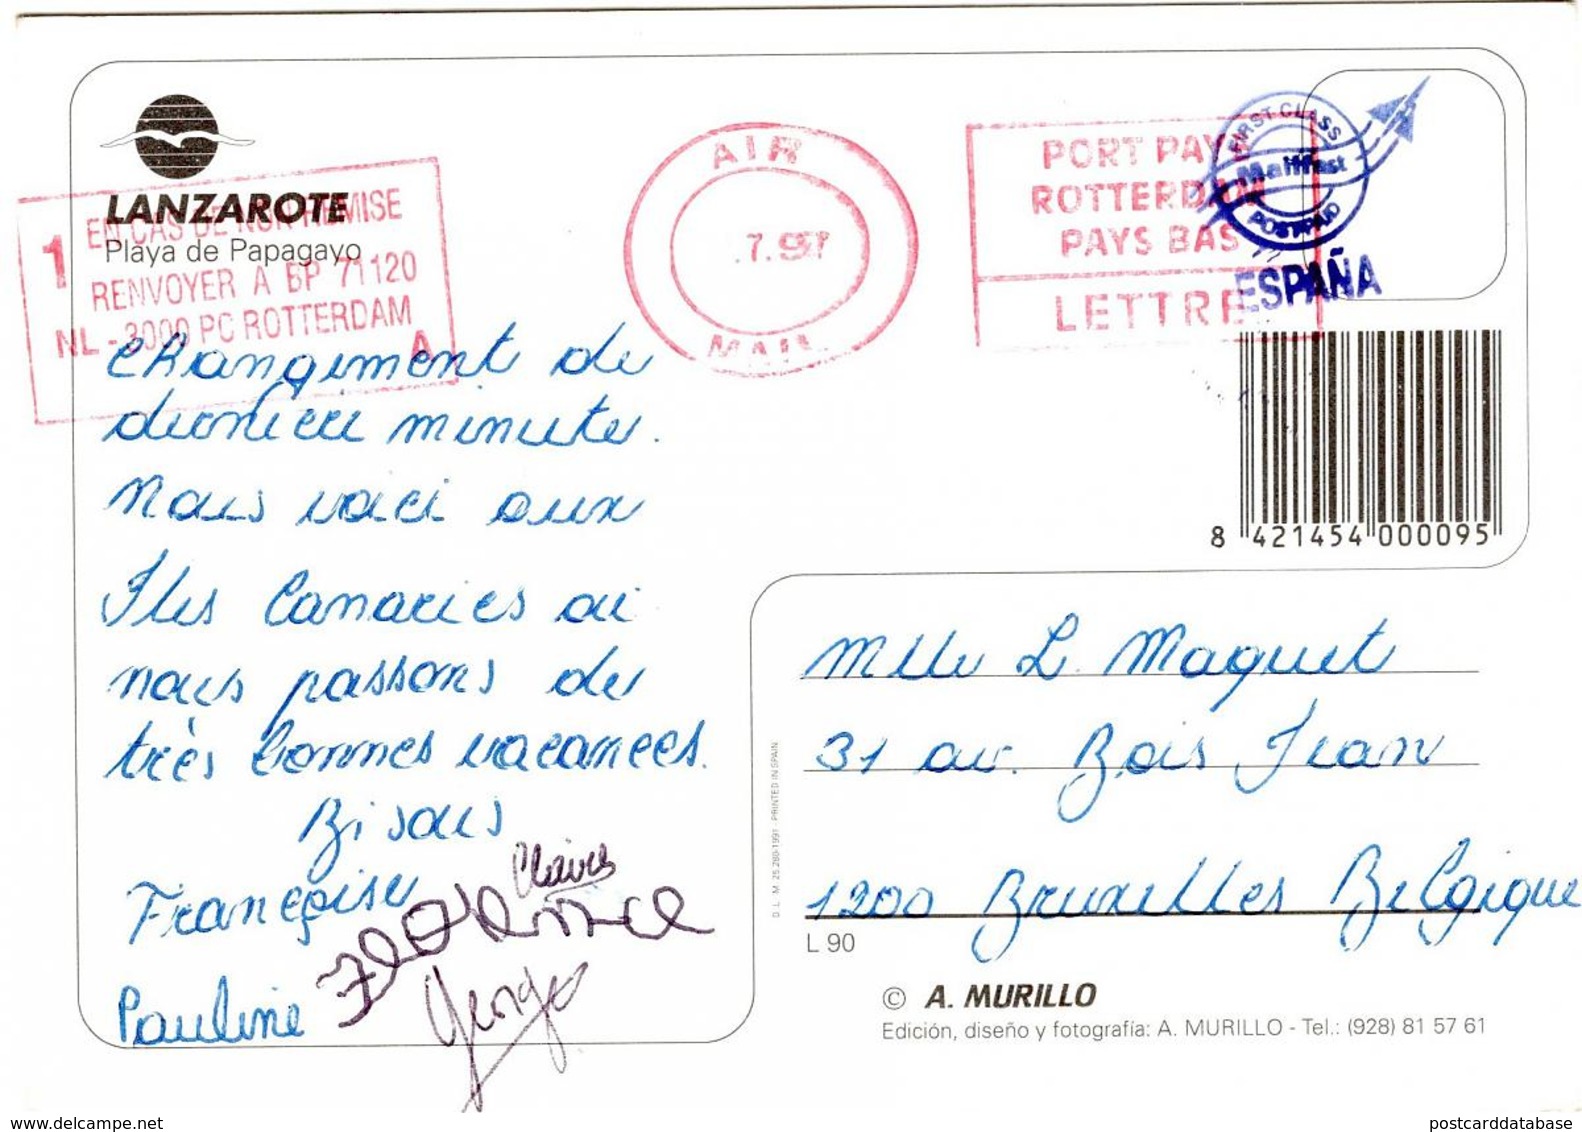 LANZAROTE
Playa de Papagayo
1 EN CAS DE NON REMISE
RENVOYER A BP 71120
NL - 3000 PC ROTTERDAM
A
AIR
.7.97
MAIL
PORT PAYE
ROTTERDAM
PAYS BAS
LETTRE
FIRST CLASS
Mailfast
POSTPAID
ESPAÑA
8 421454 000095
Changement de
dernière minute.
Nous voici aux
Iles Canaries où
nous passons de
très bonnes vacances.
Bisous
Françoise
Claire
Florence
Georges
Pauline
Mlle L. Maquet
31 av. Bois Jean
1200 Bruxelles Belgique
L 90
D. L. M. 25.280-1991 - PRINTED IN SPAIN
© A. MURILLO
Edición, diseño y fotografía: A. MURILLO - Tel.: (928) 81 57 61
www.delcampe.net
postcarddatabase